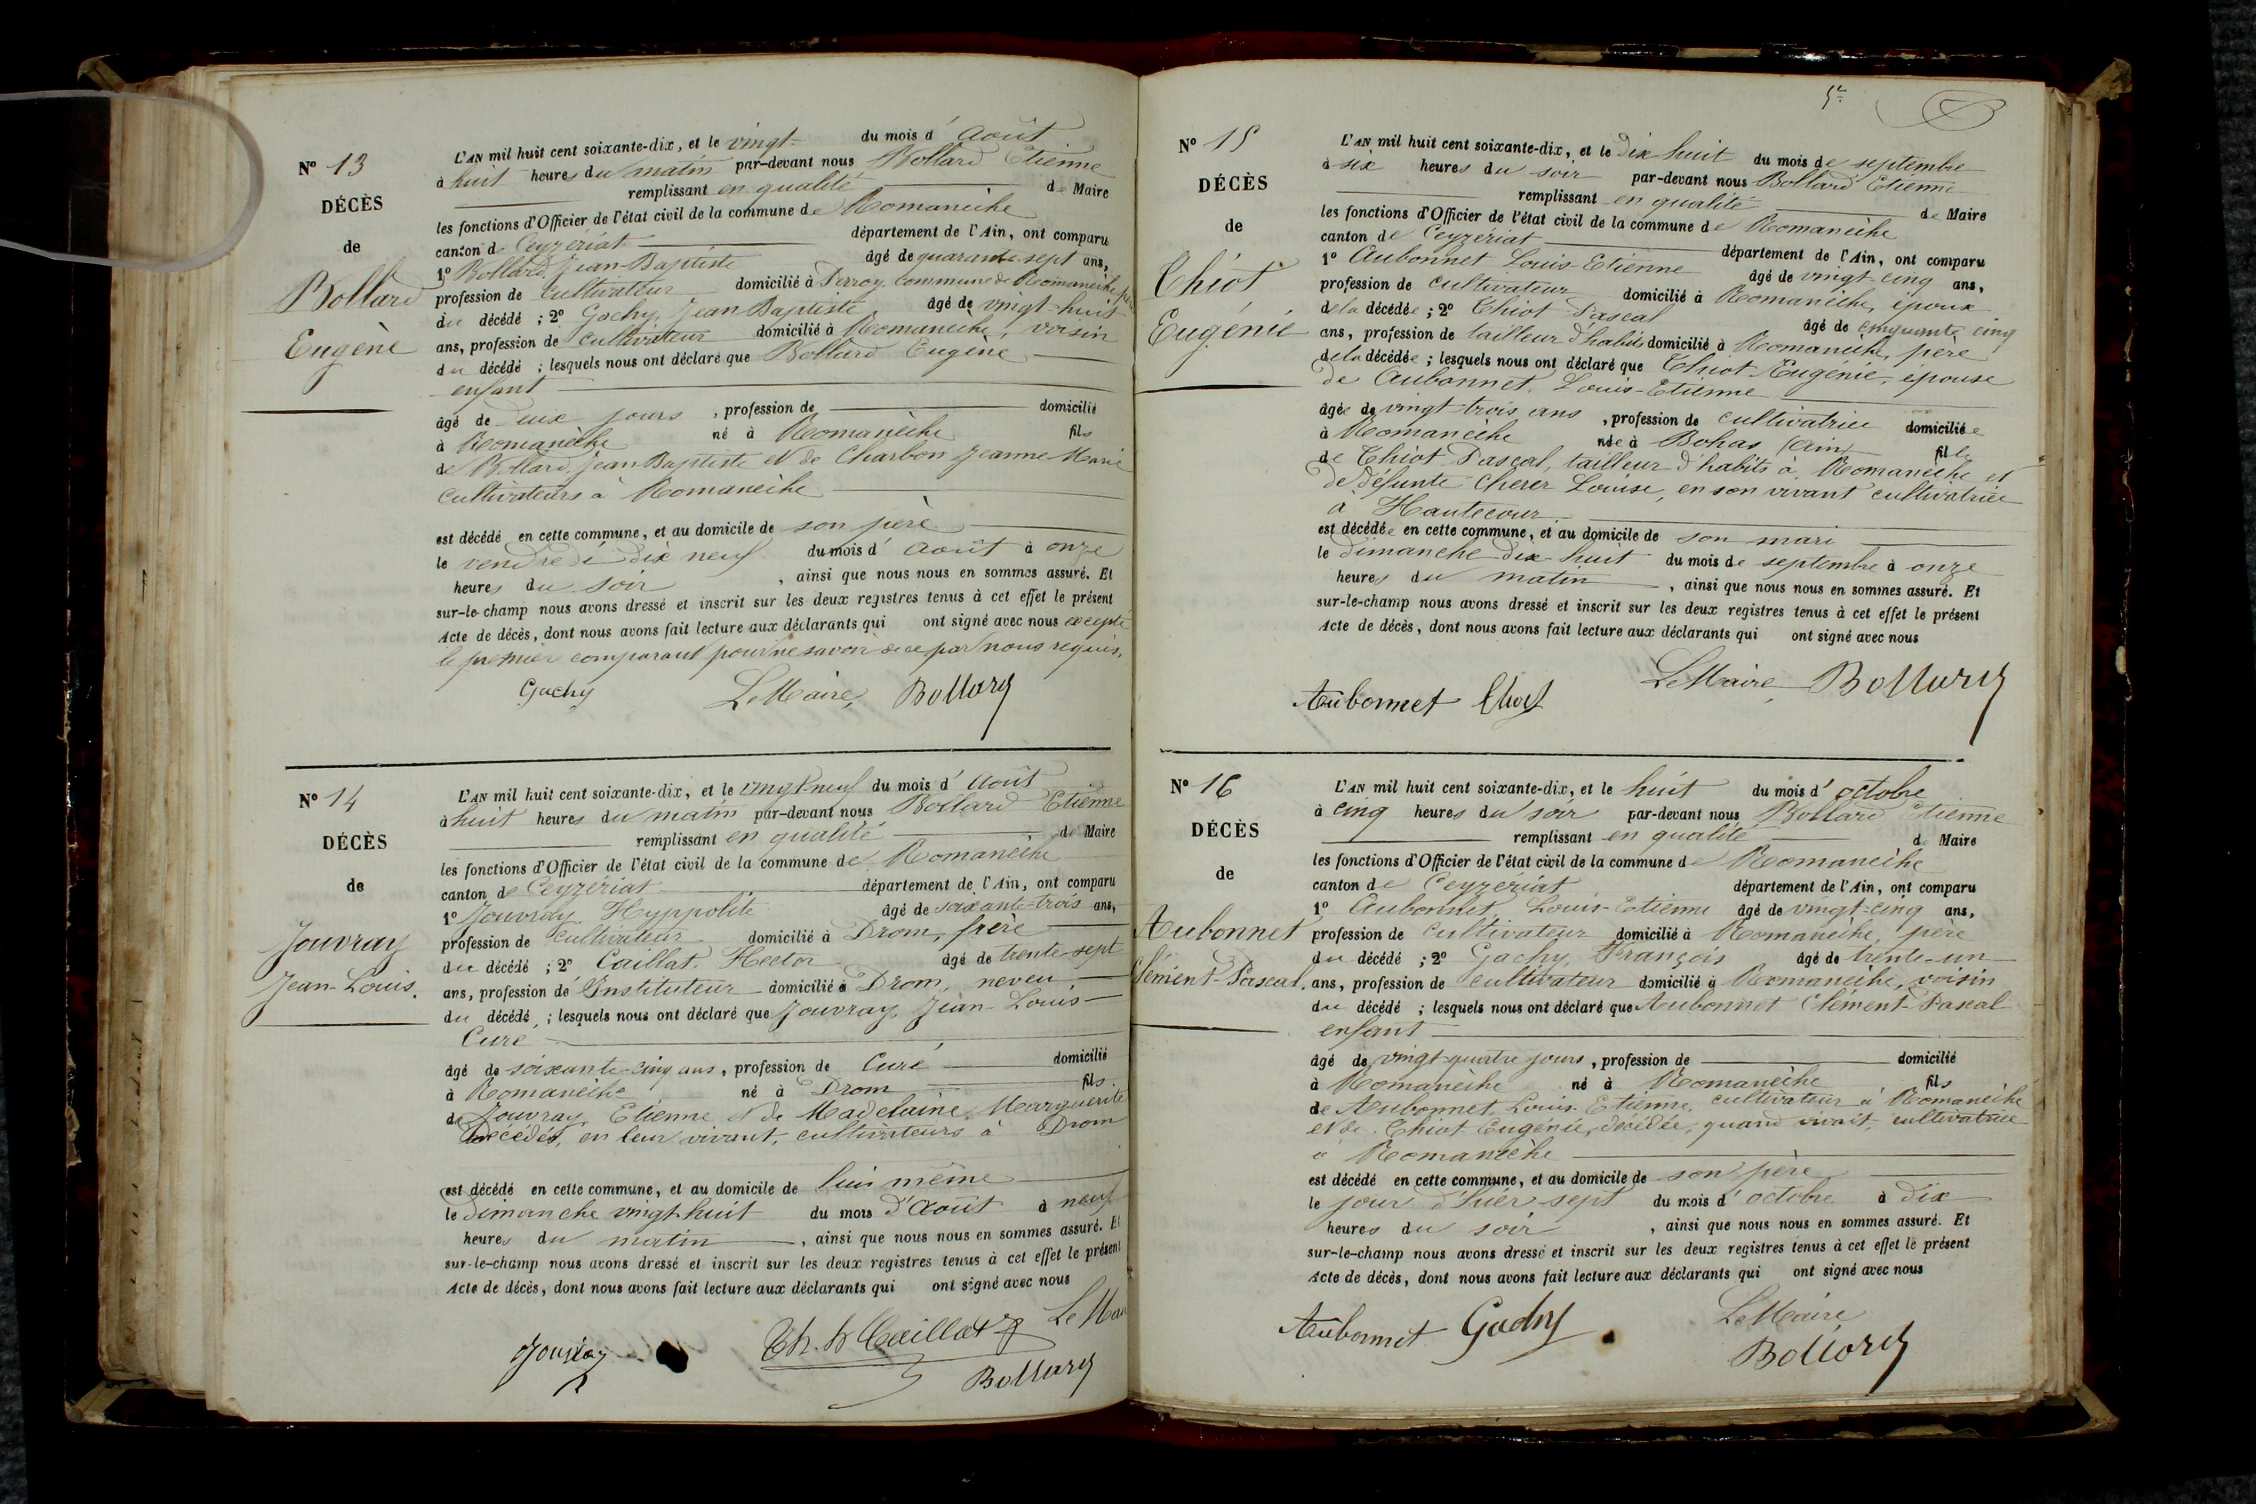 N° 13
DÉCÈS
de
Bollard
Eugène
L'AN mil huit cent soixante-dix, et le vingt du mois d'Août
à huit heures du matin par-devant nous Bollard Etienne
remplissant en qualité de Maire
les fonctions d'Officier de l'état civil de la commune de Romanèche
canton de Ceyzériat département de l'Ain, ont comparu
1° Bollard, Jean-Baptiste âgé de quarante sept ans,
profession de cultivateur domicilié à Perroy, commune de Romanèche, père
du décédé ; 2° Gachy, Jean Baptiste âgé de vingt-huit
ans, profession de cultivateur domicilié à Romanèche, voisin
du décédé ; lesquels nous ont déclaré que Bollard Eugène
enfant
âgé de deux jours, profession de domicilié
à Romanèche né à Romanèche fils
de Bollard, Jean Baptiste et de Charbon Jeanne Marie
cultivateurs à Romanèche
est décédé en cette commune, et au domicile de son père
le vendredi dix neuf du mois d'Août à onze
heures du soir, ainsi que nous nous en sommes assuré. Et
sur-le-champ nous avons dressé et inscrit sur les deux registres tenus à cet effet le présent
Acte de décès, dont nous avons fait lecture aux déclarants qui ont signé avec nous excepté
le premier comparant pour ne savoir de ce par nous requis.
Gachy Le Maire, Bollard
N° 14
DÉCÈS
de
Jouvray
Jean-Louis.
L'AN mil huit cent soixante-dix, et le vingt neuf du mois d'Août
à huit heures du matin par-devant nous Bollard Etienne
remplissant en qualité de Maire
les fonctions d'Officier de l'état civil de la commune de Romanèche
canton de Ceyzériat département de l'Ain, ont comparu
1° Jouvray Hyppolite âgé de soixante-trois ans,
profession de cultivateur domicilié à Drom, frère
du décédé ; 2° Caillat Hector âgé de trente-sept
ans, profession de Instituteur domicilié à Drom, neveu
du décédé ; lesquels nous ont déclaré que Jouvray, Jean-Louis
Curé
âgé de soixante-cinq ans, profession de Curé domicilié
à Romanèche né à Drom fils
de Jouvray, Etienne et de Madelaine Marguerite
décédés, en leur vivant, cultivateurs à Drom
est décédé en cette commune, et au domicile de lui même
le dimanche vingt huit du mois d'Août à neuf
heures du matin, ainsi que nous nous en sommes assuré. Et
sur-le-champ nous avons dressé et inscrit sur les deux registres tenus à cet effet le présent
Acte de décès, dont nous avons fait lecture aux déclarants qui ont signé avec nous
Jouvray Th. H Caillat Le Mai
Bollard
N° 15
DÉCÈS
de
Thiot
Eugénie
L'AN mil huit cent soixante-dix, et le dix huit du mois de septembre
à six heures du soir par-devant nous Bollard Etienne
remplissant en qualité de Maire
les fonctions d'Officier de l'état civil de la commune de Romanèche
canton de Ceyzériat département de l'Ain, ont comparu
1° Aubonnet Louis-Etienne âgé de vingt-cinq ans,
profession de cultivateur domicilié à Romanèche, époux
de la décédée ; 2° Thiot Pascal âgé de cinquante cinq
ans, profession de tailleur d'habits domicilié à Romanèche, père
de la décédée ; lesquels nous ont déclaré que Thiot Eugénie, épouse
de Aubonnet Louis-Etienne
âgée de vingt-trois ans, profession de cultivatrice domiciliée
à Romanèche née à Bohas (Ain) fille
de Thiot Pascal, tailleur d'habits à Romanèche et
de défunte Cherer Louise, en son vivant cultivatrice
à Hautecour
est décédée en cette commune, et au domicile de son mari
le dimanche dix-huit du mois de septembre à onze
heures du matin, ainsi que nous nous en sommes assuré. Et
sur-le-champ nous avons dressé et inscrit sur les deux registres tenus à cet effet le présent
Acte de décès, dont nous avons fait lecture aux déclarants qui ont signé avec nous
Le Maire, Bollard
Aubonnet Thiot
N° 16
DÉCÈS
de
Aubonnet
Clément-Pascal.
L'AN mil huit cent soixante-dix, et le huit du mois d'octobre
à cinq heures du soir par-devant nous Bollard Etienne
remplissant en qualité de Maire
les fonctions d'Officier de l'état civil de la commune de Romanèche
canton de Ceyzériat département de l'Ain, ont comparu
1° Aubonnet, Louis-Etienne âgé de vingt-cinq ans,
profession de cultivateur domicilié à Romanèche, père
du décédé ; 2° Gachy, François âgé de trente-un
ans, profession de cultivateur domicilié à Romanèche, voisin
du décédé ; lesquels nous ont déclaré que Aubonnet Clément-Pascal
enfant
âgé de vingt-quatre jours, profession de domicilié
à Romanèche né à Romanèche fils
de Aubonnet, Louis-Etienne, cultivateur à Romanèche
et de Thiot Eugénie, décédée, quand vivait, cultivatrice
à Romanèche
est décédé en cette commune, et au domicile de son père
le jour d'hier sept du mois d'octobre à dix
heures du soir, ainsi que nous nous en sommes assuré. Et
sur-le-champ nous avons dressé et inscrit sur les deux registres tenus à cet effet le présent
Acte de décès, dont nous avons fait lecture aux déclarants qui ont signé avec nous
Aubonnet Gachy Le Maire
Bollard